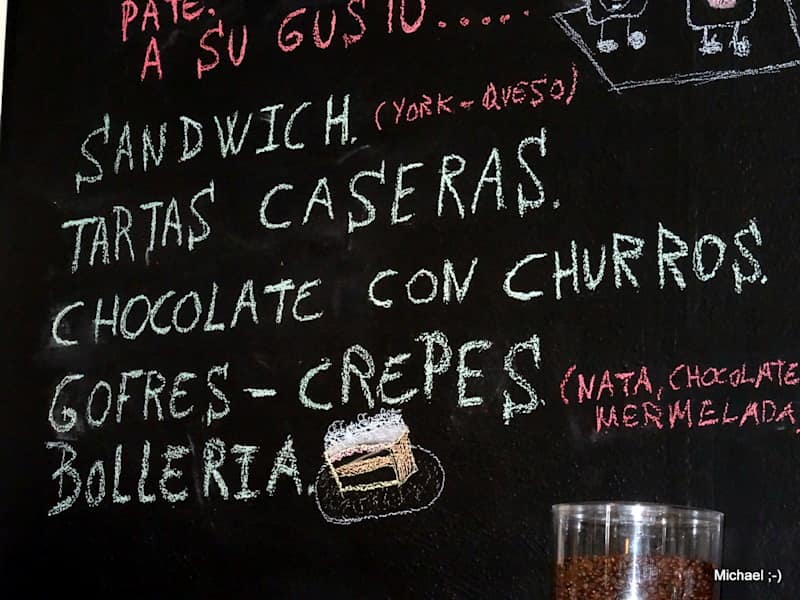 PATE.
A SU GUSTO.....
SANDWICH. (YORK-QUESO)
TARTAS CASERAS.
CHOCOLATE CON CHURROS.
GOFRES - CREPES. (NATA, CHOCOLATE
MERMELADA,
BOLLERIA.
Michael ;-)